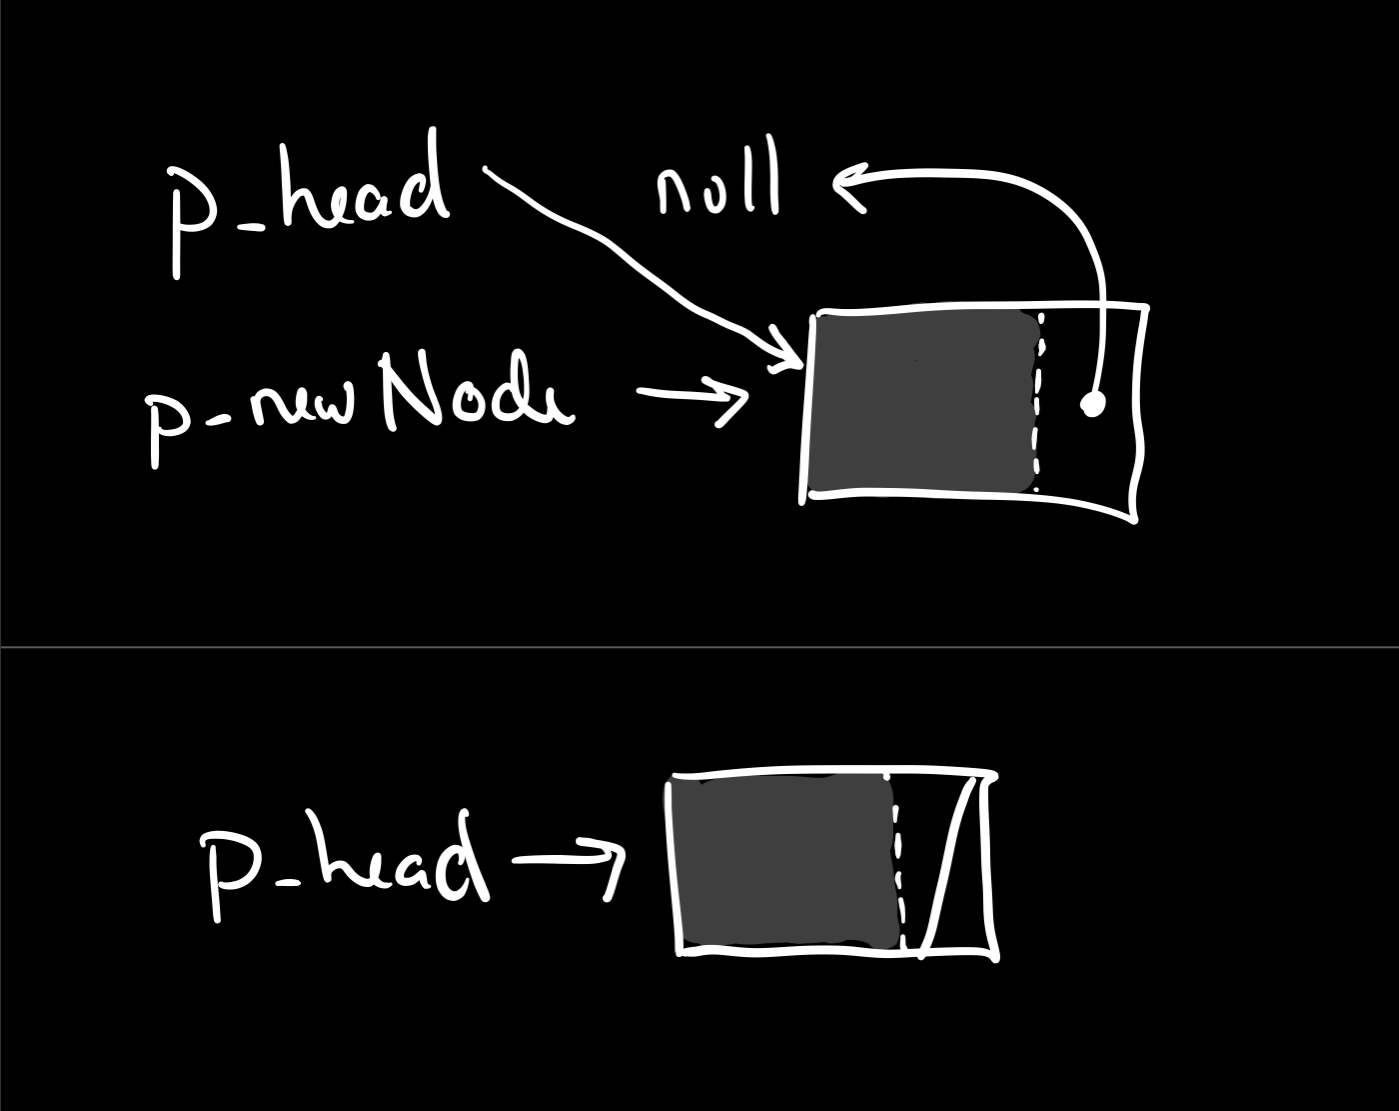 p_head null
p_newNode
p_head